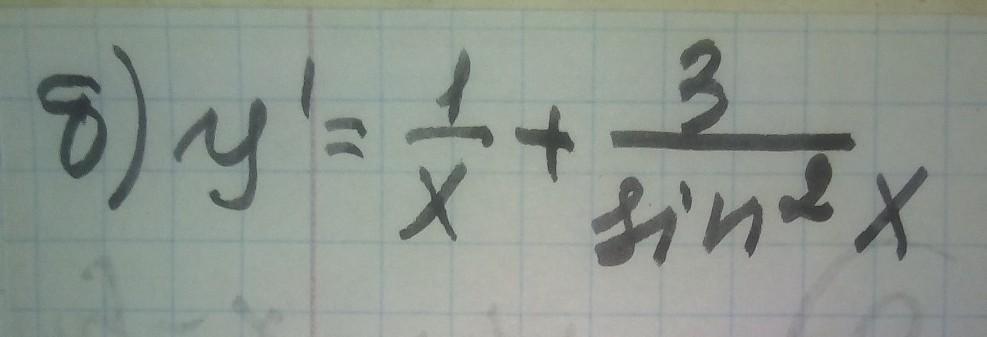 б) y' = 1/x + 3/sin²x